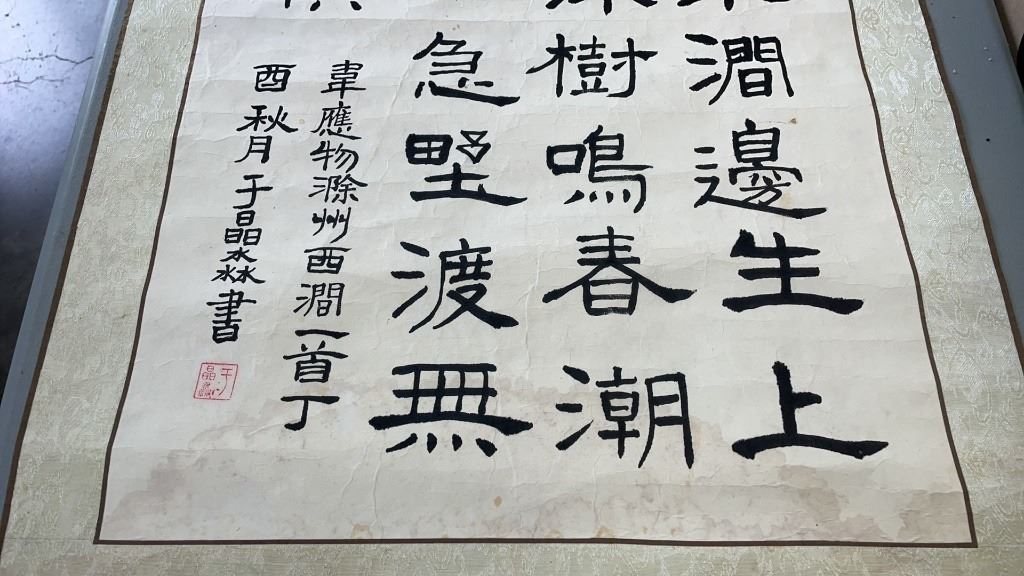 澗邊生上
樹鳴春潮
急野渡無
韋應物滁州西澗一首丁
酉秋月于晶淼書